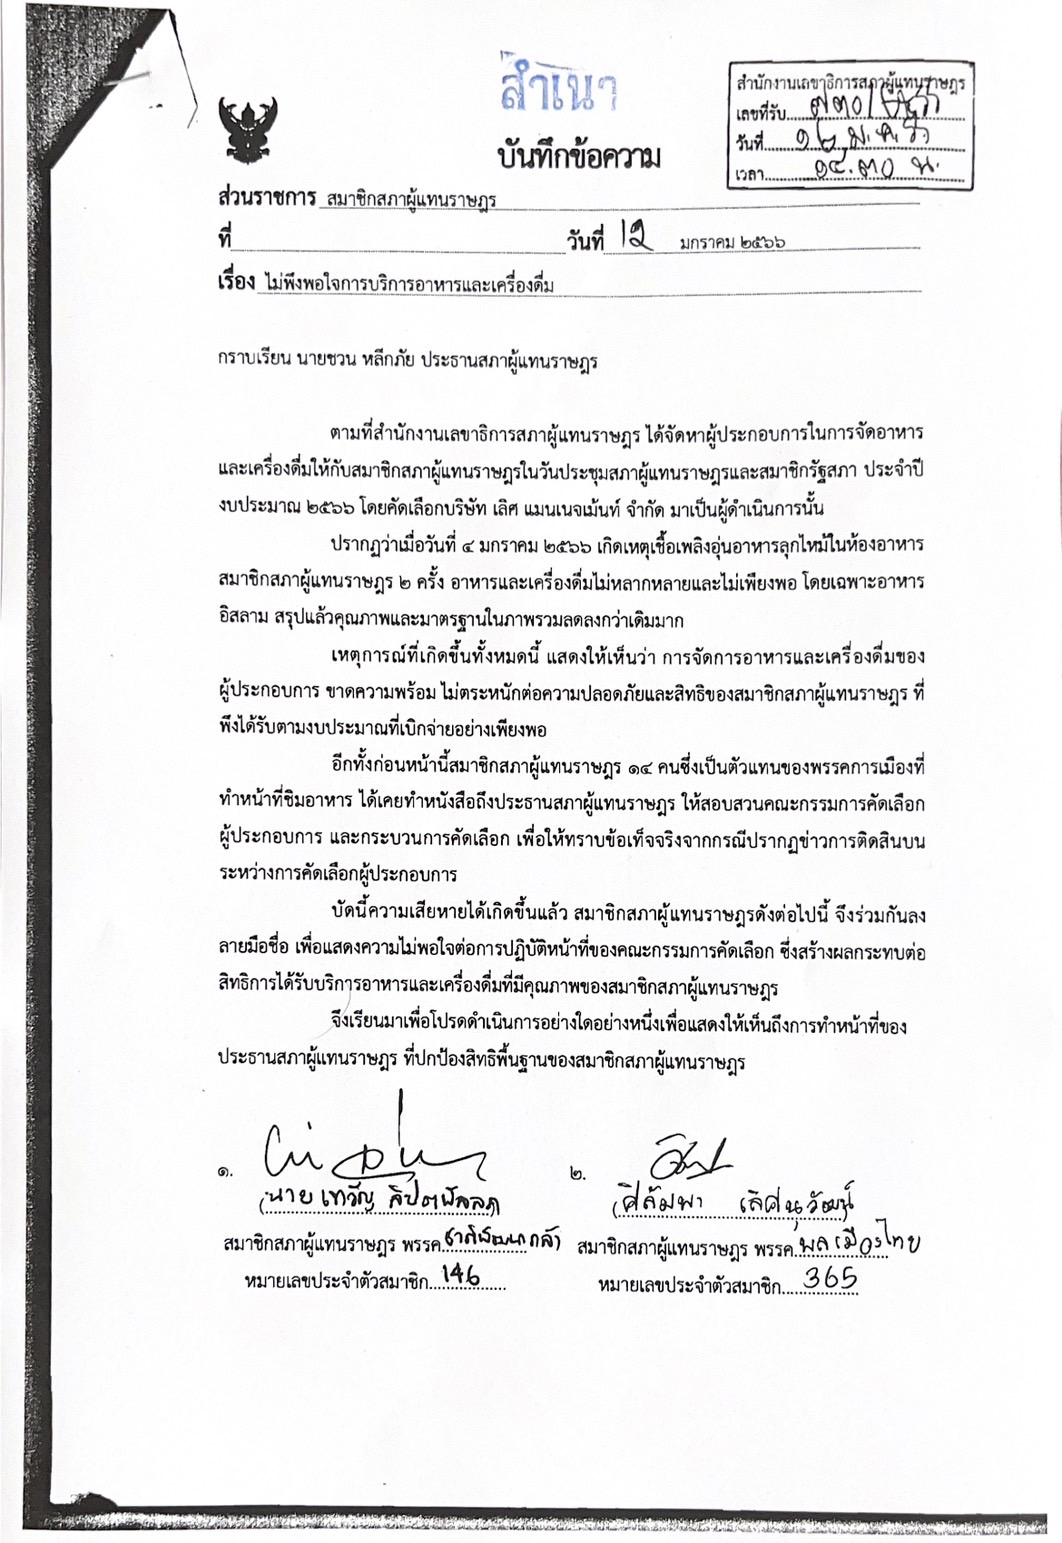 สำเนา
สำนักงานเลขาธิการสภาผู้แทนราษฎร
เลขที่รับ ๗๓๐/
วันที่ ๑๒ ม.ค.
เวลา ๑๔.๓๐ น.
บันทึกข้อความ
ส่วนราชการ สมาชิกสภาผู้แทนราษฎร
ที่ วันที่ 12 มกราคม ๒๕๖๖
เรื่อง ไม่พึงพอใจการบริการอาหารและเครื่องดื่ม
กราบเรียน นายชวน หลีกภัย ประธานสภาผู้แทนราษฎร
ตามที่สำนักงานเลขาธิการสภาผู้แทนราษฎร ได้จัดหาผู้ประกอบการในการจัดอาหาร
และเครื่องดื่มให้กับสมาชิกสภาผู้แทนราษฎรในวันประชุมสภาผู้แทนราษฎรและสมาชิกรัฐสภา ประจำปี
งบประมาณ ๒๕๖๖ โดยคัดเลือกบริษัท เลิศ แมนเนจเม้นท์ จำกัด มาเป็นผู้ดำเนินการนั้น
ปรากฏว่าเมื่อวันที่ ๔ มกราคม ๒๕๖๖ เกิดเหตุเชื้อเพลิงอุ่นอาหารลุกไหม้ในห้องอาหาร
สมาชิกสภาผู้แทนราษฎร ๒ ครั้ง อาหารและเครื่องดื่มไม่หลากหลายและไม่เพียงพอ โดยเฉพาะอาหาร
อิสลาม สรุปแล้วคุณภาพและมาตรฐานในภาพรวมลดลงกว่าเดิมมาก
เหตุการณ์ที่เกิดขึ้นทั้งหมดนี้ แสดงให้เห็นว่า การจัดการอาหารและเครื่องดื่มของ
ผู้ประกอบการ ขาดความพร้อม ไม่ตระหนักต่อความปลอดภัยและสิทธิของสมาชิกสภาผู้แทนราษฎร ที่
พึงได้รับตามงบประมาณที่เบิกจ่ายอย่างเพียงพอ
อีกทั้งก่อนหน้านี้สมาชิกสภาผู้แทนราษฎร ๑๔ คนซึ่งเป็นตัวแทนของพรรคการเมืองที่
ทำหน้าที่ชิมอาหาร ได้เคยทำหนังสือถึงประธานสภาผู้แทนราษฎร ให้สอบสวนคณะกรรมการคัดเลือก
ผู้ประกอบการ และกระบวนการคัดเลือก เพื่อให้ทราบข้อเท็จจริงจากกรณีปรากฏข่าวการติดสินบน
ระหว่างการคัดเลือกผู้ประกอบการ
บัดนี้ความเสียหายได้เกิดขึ้นแล้ว สมาชิกสภาผู้แทนราษฎรดังต่อไปนี้ จึงร่วมกันลง
ลายมือชื่อ เพื่อแสดงความไม่พอใจต่อการปฏิบัติหน้าที่ของคณะกรรมการคัดเลือก ซึ่งสร้างผลกระทบต่อ
สิทธิการได้รับบริการอาหารและเครื่องดื่มที่มีคุณภาพของสมาชิกสภาผู้แทนราษฎร
จึงเรียนมาเพื่อโปรดดำเนินการอย่างใดอย่างหนึ่งเพื่อแสดงให้เห็นถึงการทำหน้าที่ของ
ประธานสภาผู้แทนราษฎร ที่ปกป้องสิทธิพื้นฐานของสมาชิกสภาผู้แทนราษฎร
๑. ๒.
(นาย เทวัญ ลิปตพัลลภ) (ศิลัมพา เลิศนุวัฒน์)
สมาชิกสภาผู้แทนราษฎร พรรค ชาติพัฒนากล้า สมาชิกสภาผู้แทนราษฎร พรรค พลเมืองไทย
หมายเลขประจำตัวสมาชิก 146 หมายเลขประจำตัวสมาชิก 365